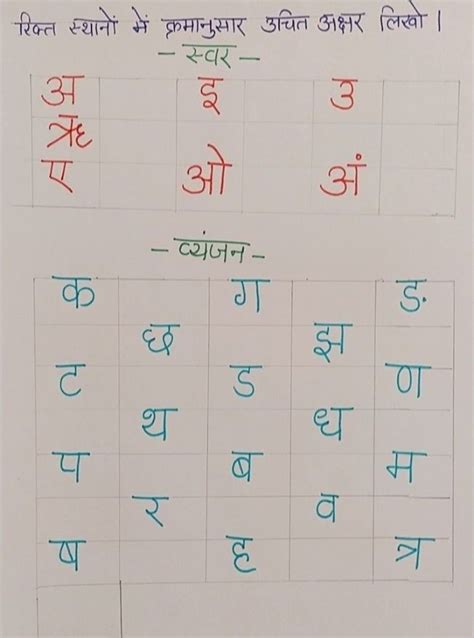 रिक्त स्थानों में क्रमानुसार उचित अक्षर लिखो।
- स्वर -
अ इ उ
ऋ
ए ओ अं
- व्यंजन -
क ग ङ
छ झ
ट ड ण
थ ध
प ब म
र व
ष ह त्र